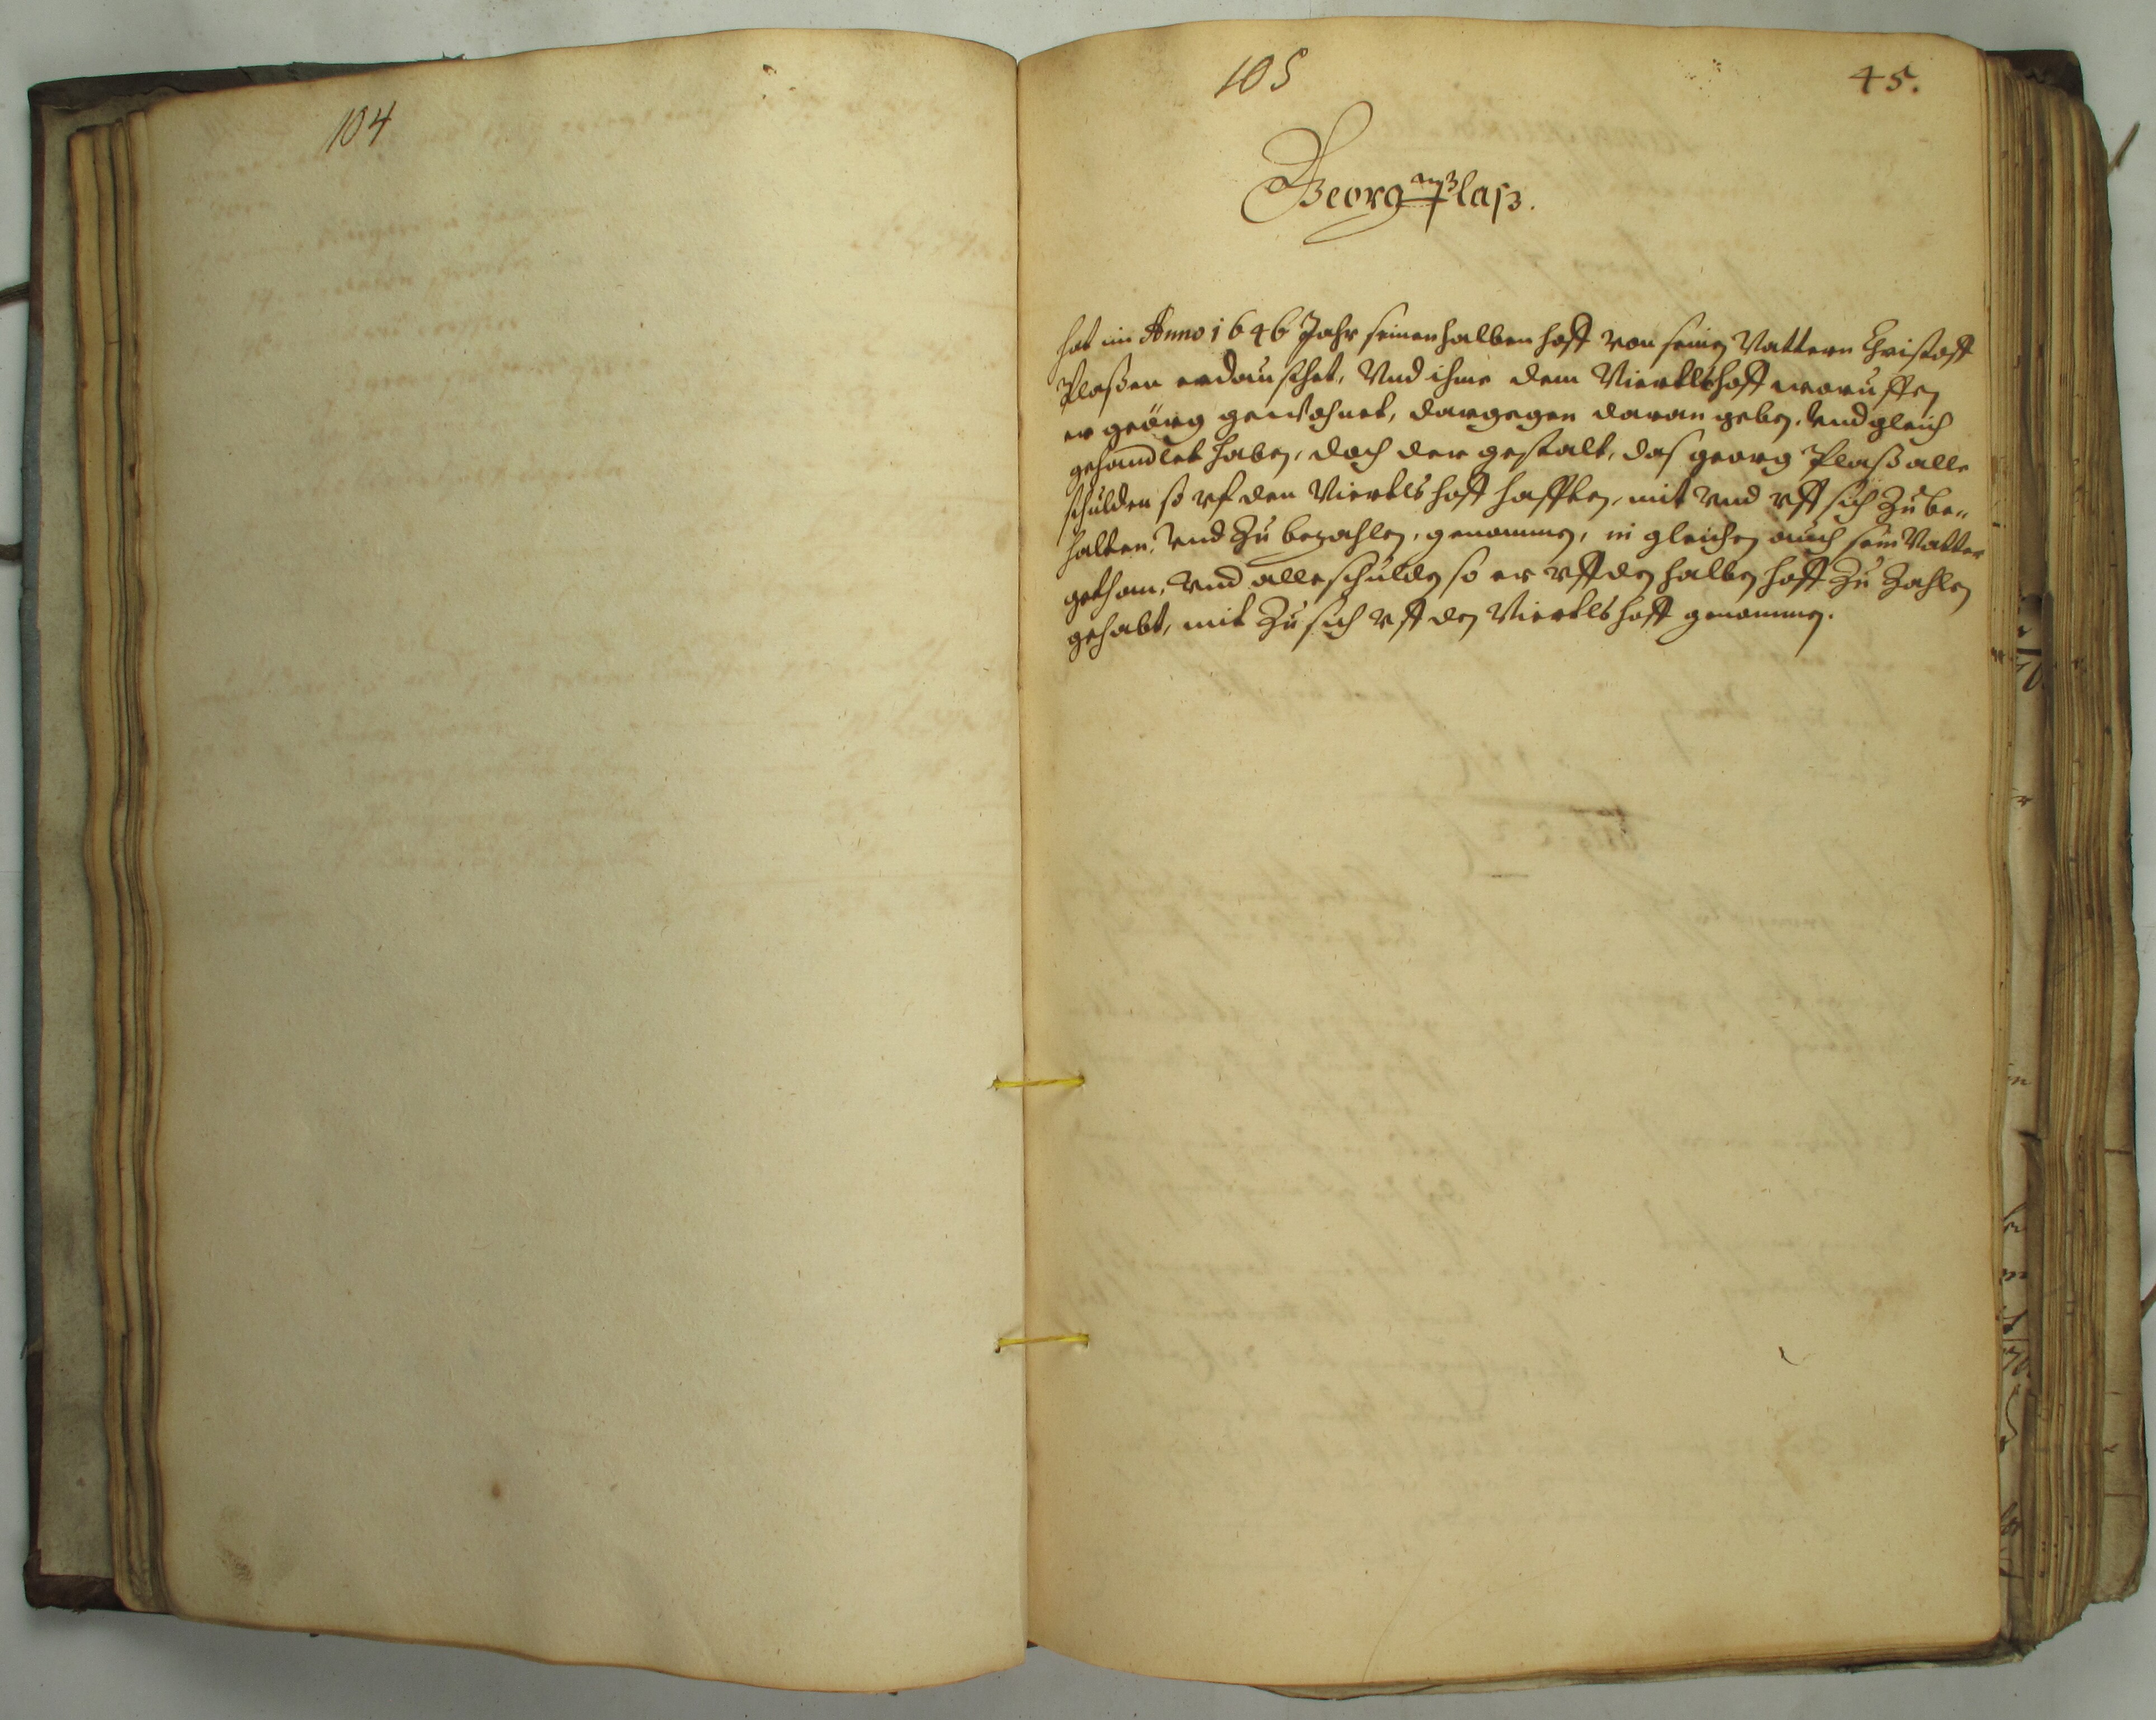 104
105
45.
Georg Plaß.
hat im Anno 1646 Jahr seinen halben hoff von seinen Vattern Christoff
Plaßen erdauschet, Vnd ihme dem Viertlshoff woruffen
er geörg gewohnet, dargegen daran geben, Vnd gleich
gehandlet haben, doch der gestalt, das georg Plaß alle
schulden so vf den Viertls hoff hafften, mit vnd vff sich Zu be„
halten, Vnd Zu bezahlen, genommen, in gleichen auch sein Vatter
gethan, Vnd alle schulden so er vff den halben hoff Zu Zahlen
gehabt, mit Zu sich vff den Viertls hoff genommen.